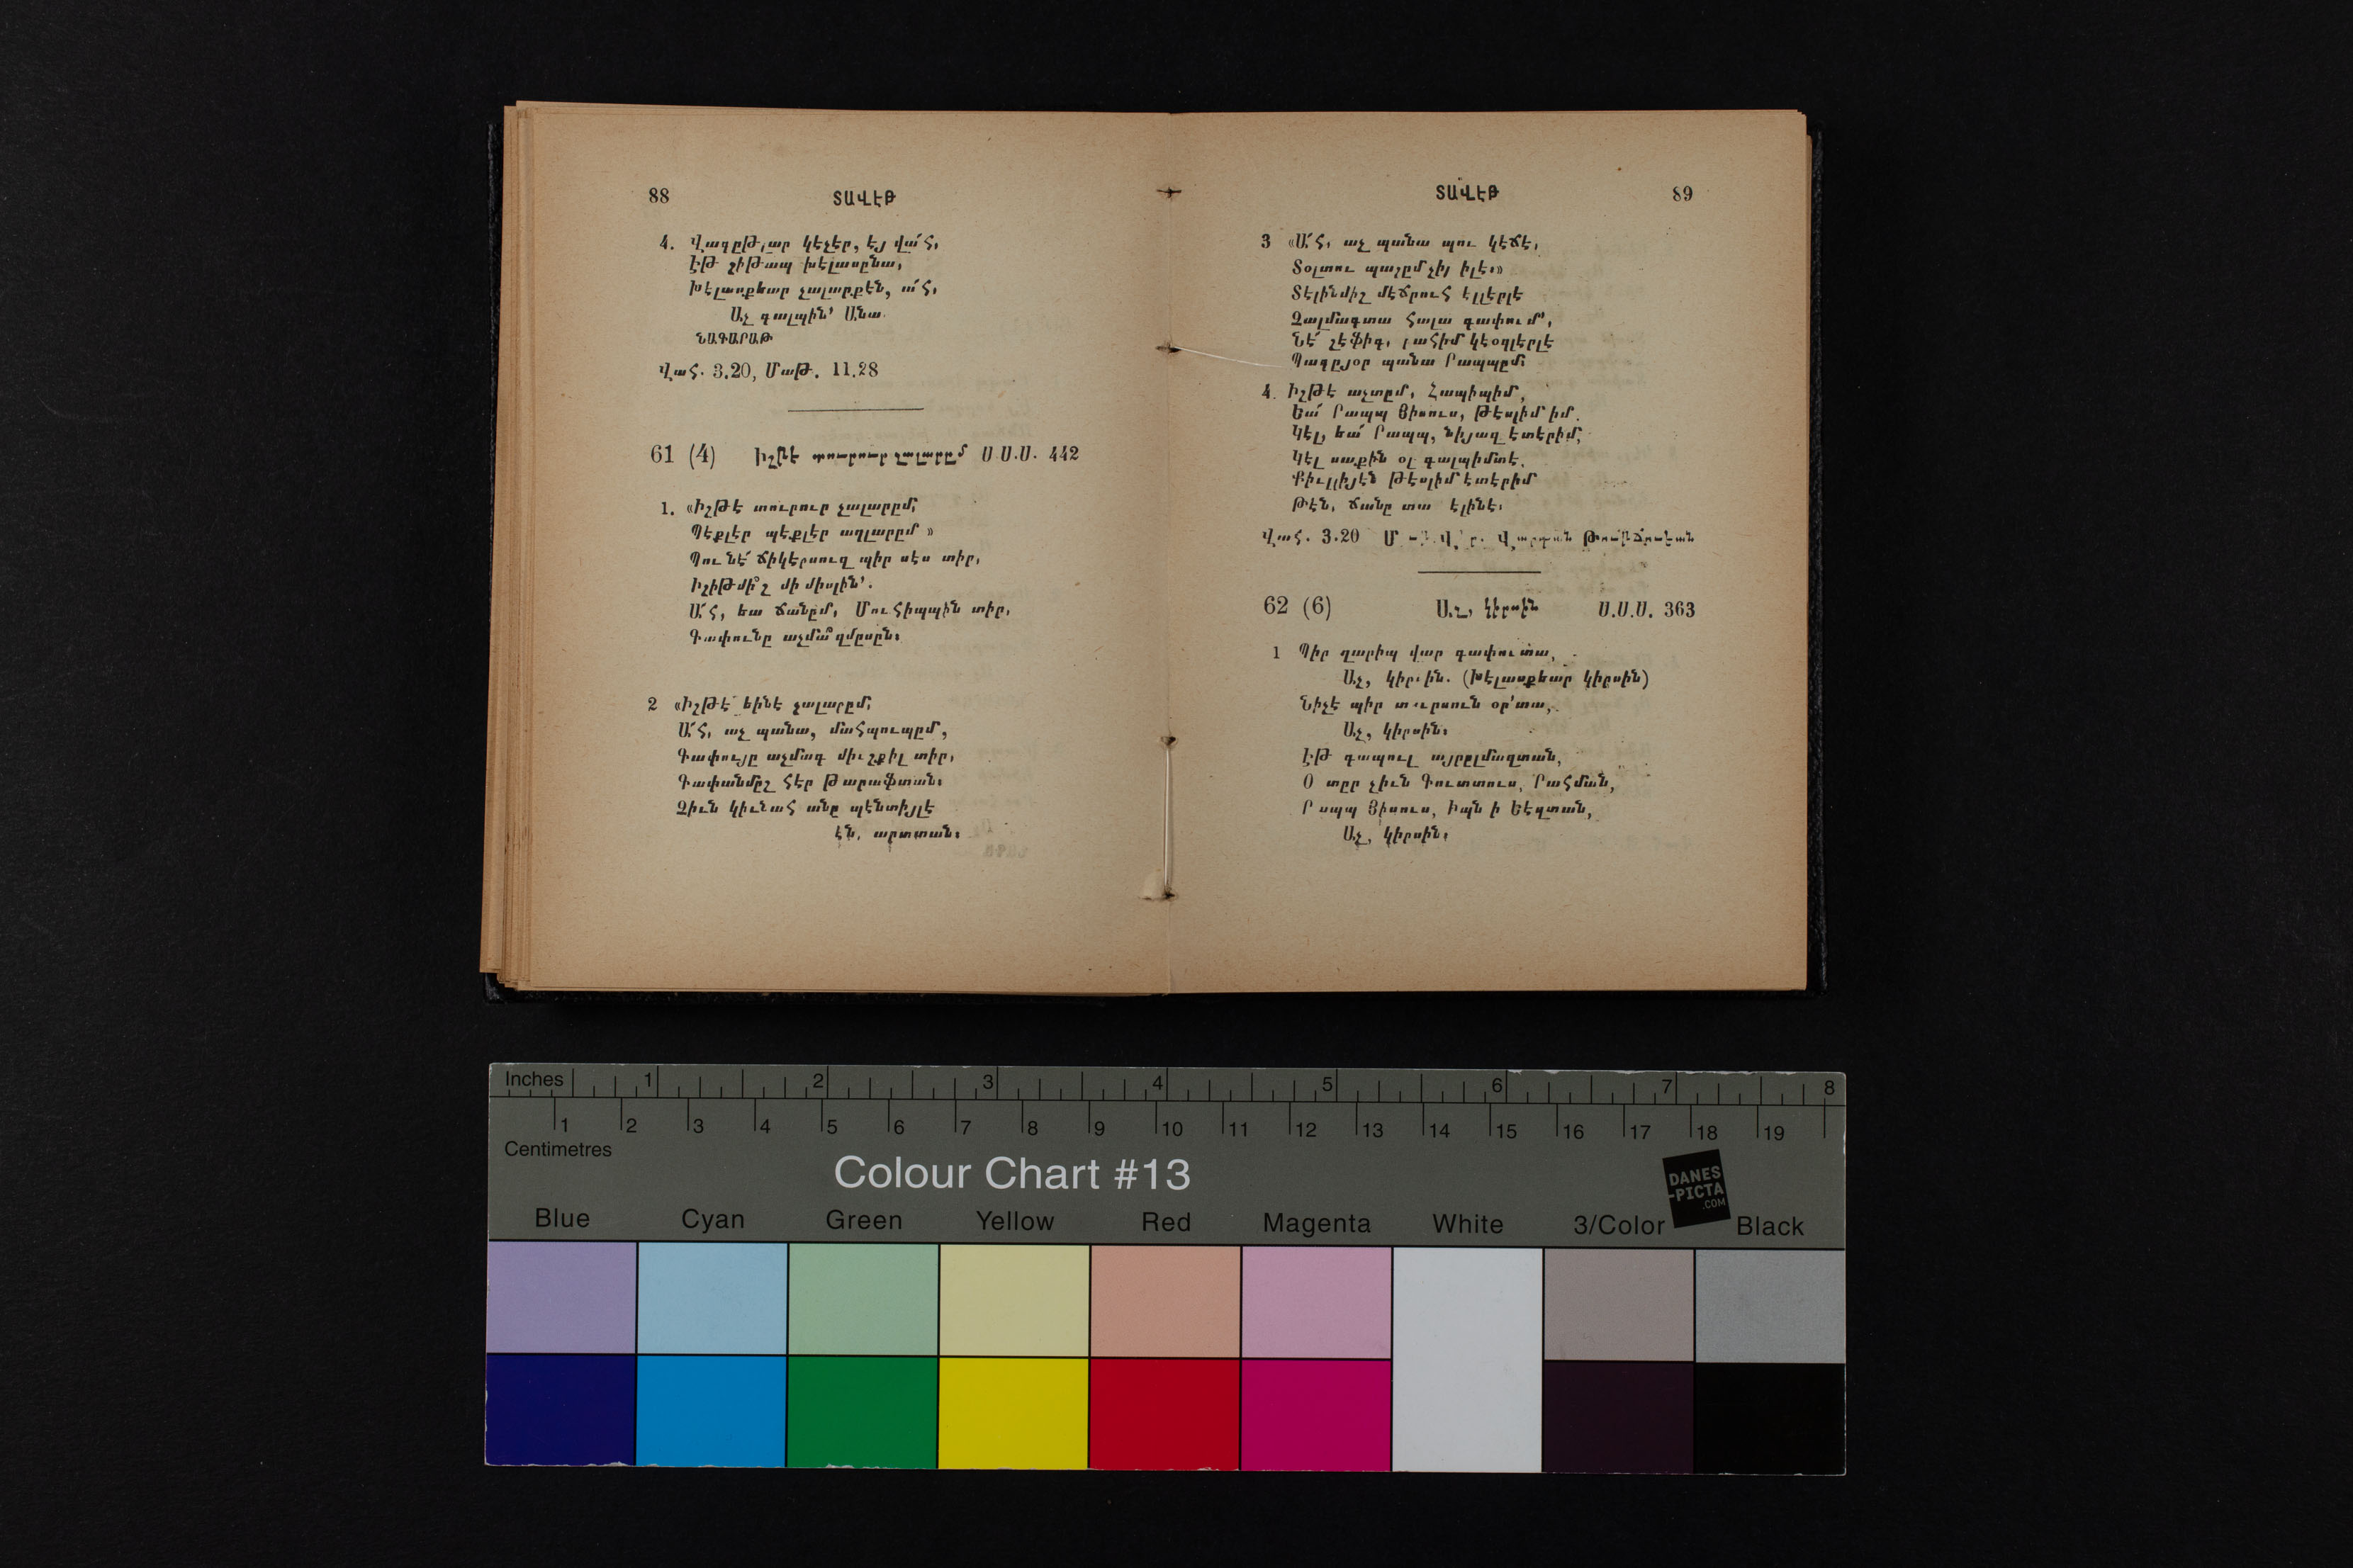 88 ՏԱՎԷԹ
4. Վագըթլար կէչէր, էյ վա՜հ,
Էթ շիթապ խէլասընա,
Խէլասքեար չալարքէն, ա՜հ,
Աչ գալպին՚ Անա.
ՆԱԳԱՐԱԹ
Վահ. 3.20, Մաթ. 11.28
61 (4) Իշթէ տուրուր չալարըմ Ս.Ս.Ս. 442
1. «Իշթէ տուրուր չալարըմ,
Պէքլէր պէքլէր աղլարըմ»
Պու նէ՛ ճիկէրսուզ պիր սէս տիր,
Իշիթմի՞շ մի միսլին՚.
Ա՜հ, եա ճանըմ, Մուհիպպին տիր,
Գափունը աչմա՞զմըսըն։
2 «Իշթէ եինէ չալարըմ,
Ա՜հ, աչ պանա, մահպուպըմ,
Գափույը աչմագ միւշքիլ տիր,
Գափանմըշ հէր թարաֆտան։
Զիւն կիւնահ անը պէնտիյլէ
էն, արտտան։
ՏԱՎԷԹ 89
3 «Ա՜հ, աչ պանա պու կէճէ,
Տօլտու պաշըմ չիյ իլէ։»
Տէլինմիշ մէճրուհ էլլէրլէ
Չալմագտա հալա գափում՚,
Նէ՛ շէֆիգ, րահիմ կէօզլէրլէ
Պագըյօր պանա Րապպըմ։
4. Իշթէ աչտըմ, Հապիպիմ,
Եա՛ Րապպ Յիսուս, թէսլիմ իմ.
Կէլ, եա՛ Րապպ, նիյազ էտէրիմ,
Կէլ սաքին օլ գալպիմտէ.
Քիւլլիյէն թէսլիմ էտէրիմ
Թէն, ճանը տա էլինէ։
Վահ. 3.20
62 (6) Աչ, կիրսին Ս.Ս.Ս. 363
1 Պիր ղարիպ վար գափուտա,
Աչ, կիրսին. (Խէլասքեար կիրսին)
Նիչէ պիր տուրսուն օր՚տա,
Աչ, կիրսին։
Էթ գապուլ այրըլմազտան,
Օ տըր չիւն Գուտտուս, Րահման,
Րապպ Յիսուս, Իպն ի Եէզտան,
Աչ, կիրսին։
Inches 1 2 3 4 5 6 7 8
1 2 3 4 5 6 7 8 9 10 11 12 13 14 15 16 17 18 19
Centimetres
Colour Chart #13
DANES
-PICTA
.COM
Blue Cyan Green Yellow Red Magenta White 3/Color Black